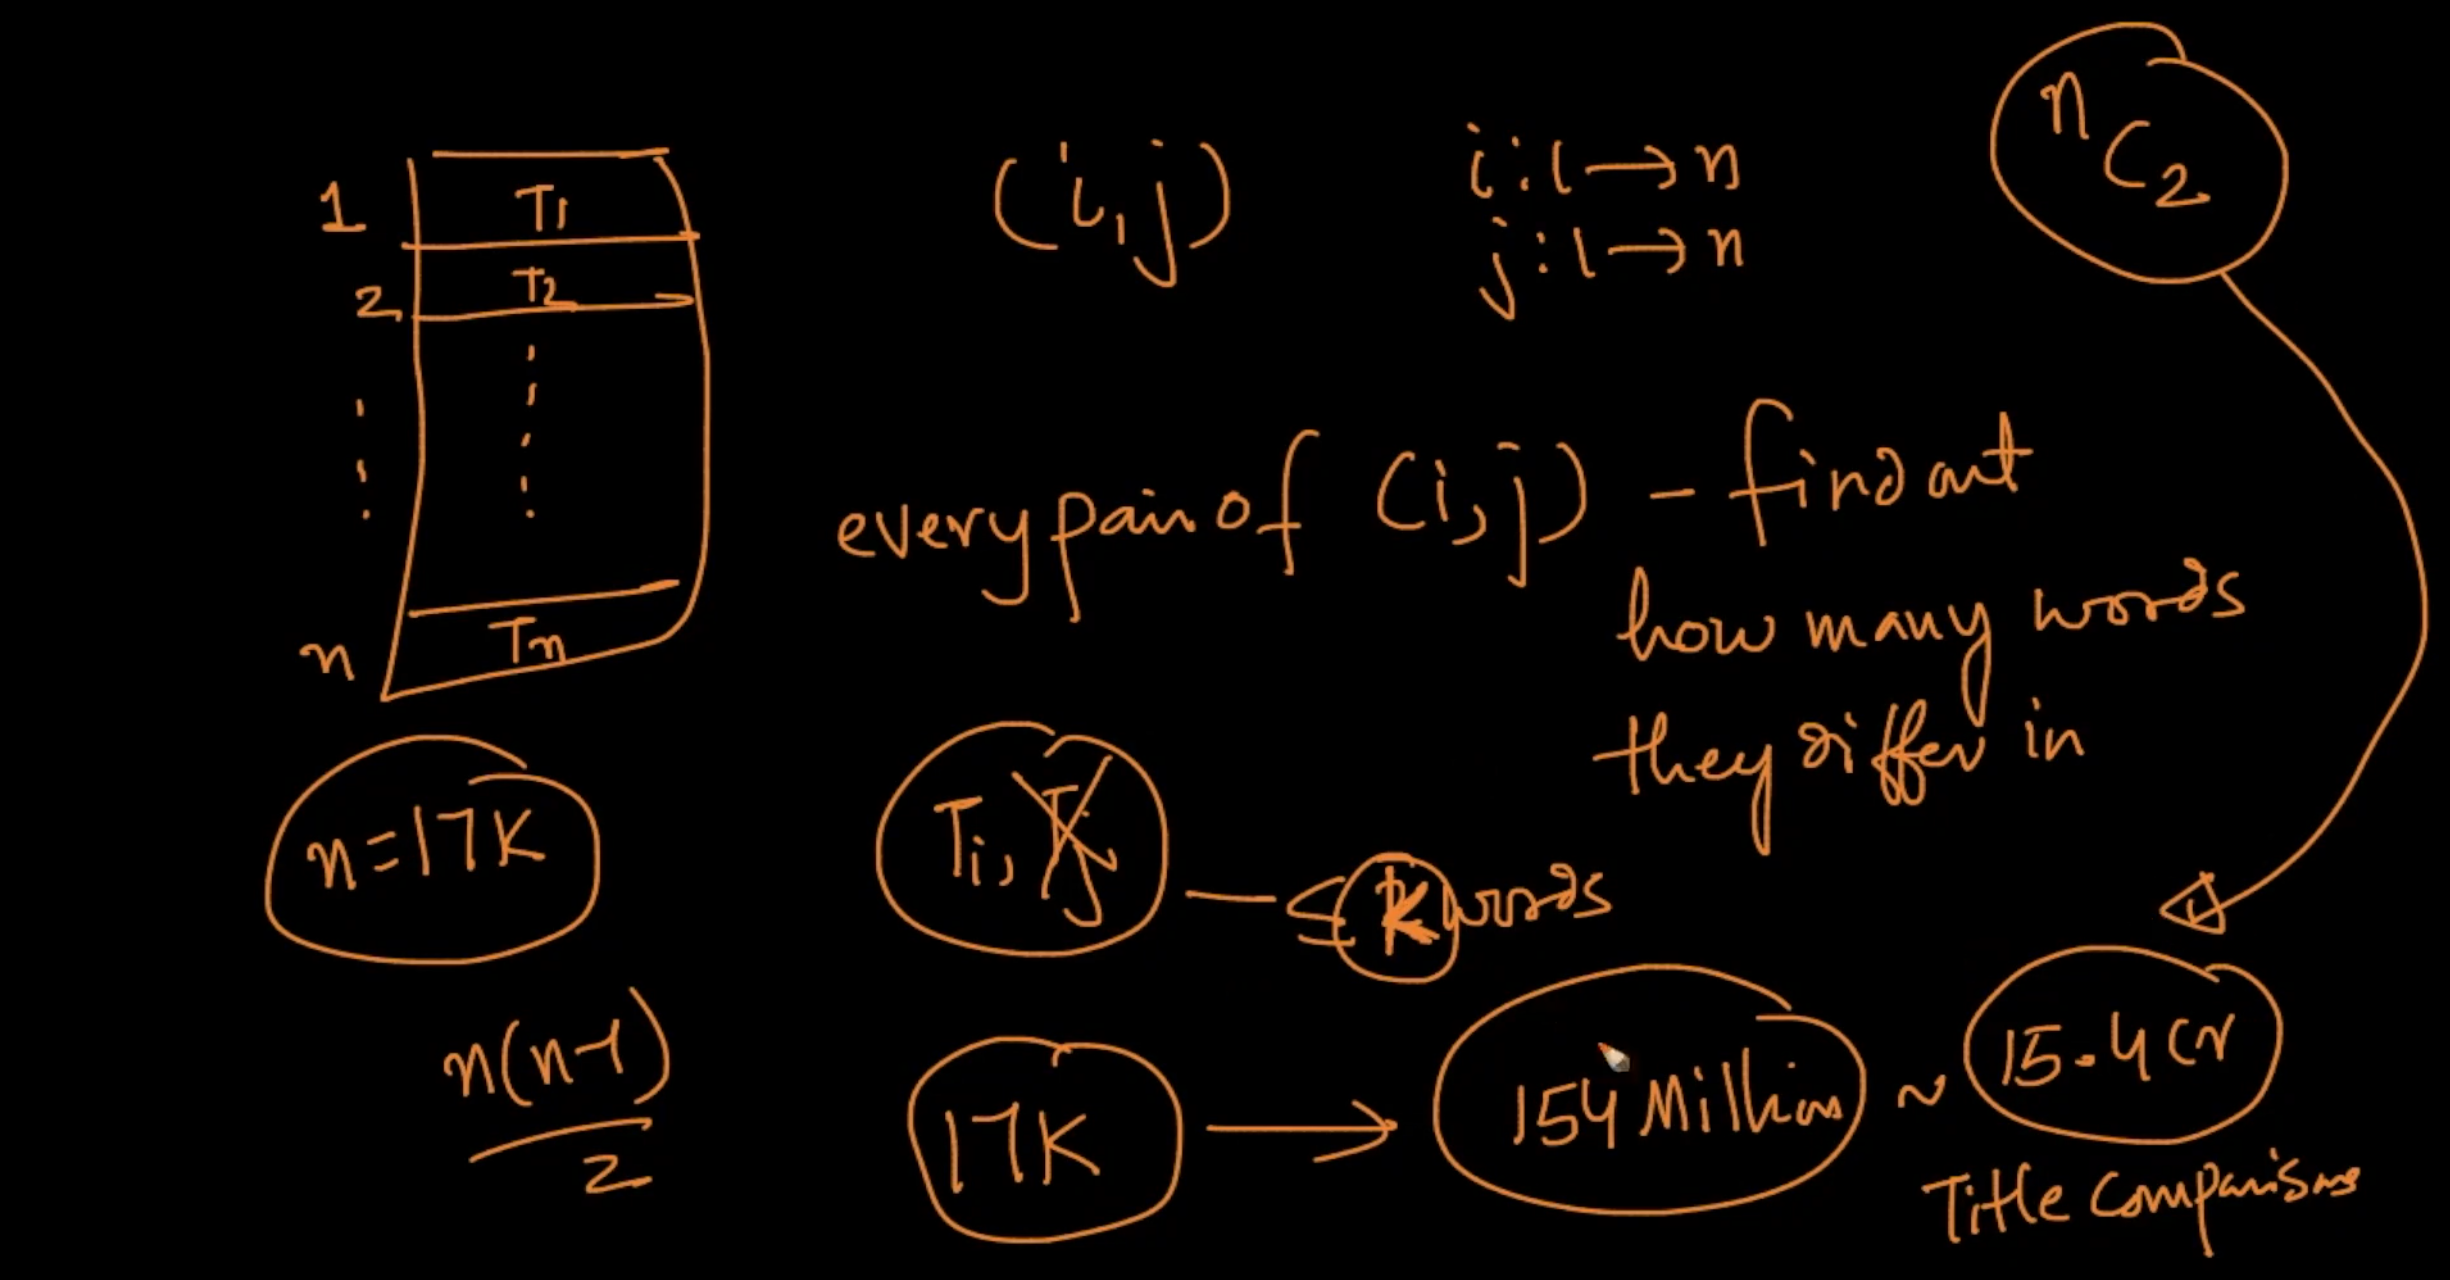 1 T1
2 T2
n Tn
(i, j)
i : 1 → n
j : 1 → n
nC2
every pair of (i, j) - find out
how many words
they differ in
n = 17K
Ti, Tj — ≤ K words
n(n-1)
2
17K → 154 Million ~ 15.4 Cr
Title Comparisons